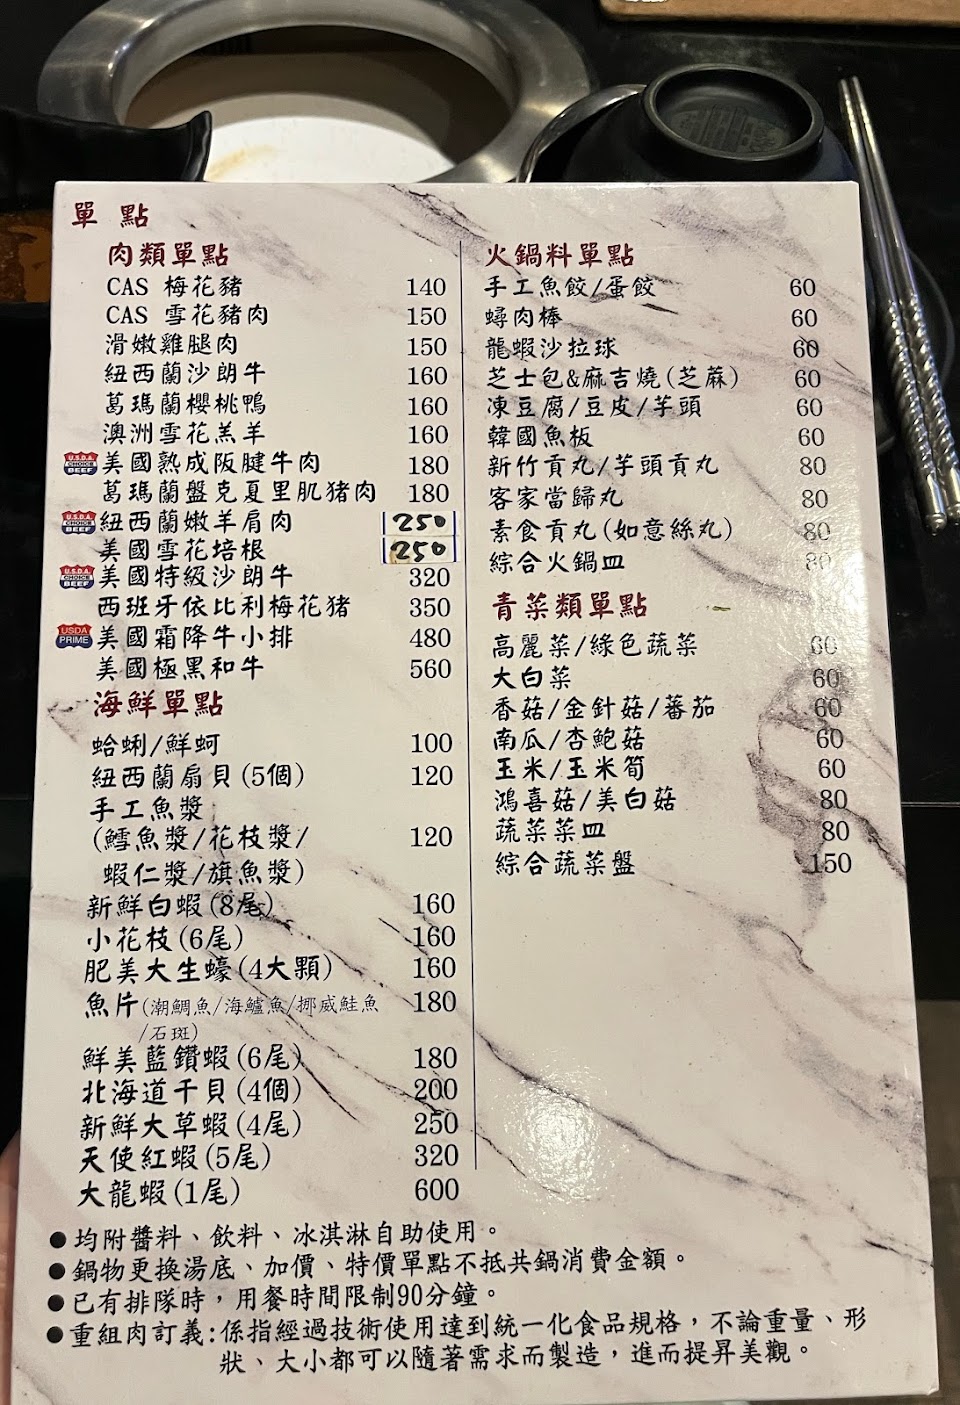 單 點
肉類單點
CAS 梅花豬 140
CAS 雪花豬肉 150
滑嫩雞腿肉 150
紐西蘭沙朗牛 160
葛瑪蘭櫻桃鴨 160
澳洲雪花羔羊 160
U.S.D.A. CHOICE BEEF 美國熟成阪腱牛肉 180
葛瑪蘭盤克夏里肌猪肉 180
U.S.D.A. CHOICE BEEF 紐西蘭嫩羊肩肉 250
美國雪花培根 250
U.S.D.A. CHOICE BEEF 美國特級沙朗牛 320
西班牙依比利梅花豬 350
USDA PRIME 美國霜降牛小排 480
美國極黑和牛 560
海鮮單點
蛤蜊/鮮蚵 100
紐西蘭扇貝(5個) 120
手工魚漿
(鱈魚漿/花枝漿/ 120
蝦仁漿/旗魚漿)
新鮮白蝦(8尾) 160
小花枝(6尾) 160
肥美大生蠔(4大顆) 160
魚片(潮鯛魚/海鱸魚/挪威鮭魚 180
/石斑)
鮮美藍鑽蝦(6尾) 180
北海道干貝(4個) 200
新鮮大草蝦(4尾) 250
天使紅蝦(5尾) 320
大龍蝦(1尾) 600
火鍋料單點
手工魚餃/蛋餃 60
蟳肉棒 60
龍蝦沙拉球 60
芝士包&麻吉燒(芝蔴) 60
凍豆腐/豆皮/芋頭 60
韓國魚板 60
新竹貢丸/芋頭貢丸 80
客家當歸丸 80
素食貢丸(如意絲丸) 80
綜合火鍋皿 80
青菜類單點
高麗菜/綠色蔬菜 60
大白菜 60
香菇/金針菇/蕃茄 60
南瓜/杏鮑菇 60
玉米/玉米筍 60
鴻喜菇/美白菇 80
蔬菜菜皿 80
綜合蔬菜盤 150
●均附醬料、飲料、冰淇淋自助使用。
●鍋物更換湯底、加價、特價單點不抵共鍋消費金額。
●已有排隊時，用餐時間限制90分鐘。
●重組肉訂義:係指經過技術使用達到統一化食品規格，不論重量、形
狀、大小都可以隨著需求而製造，進而提昇美觀。